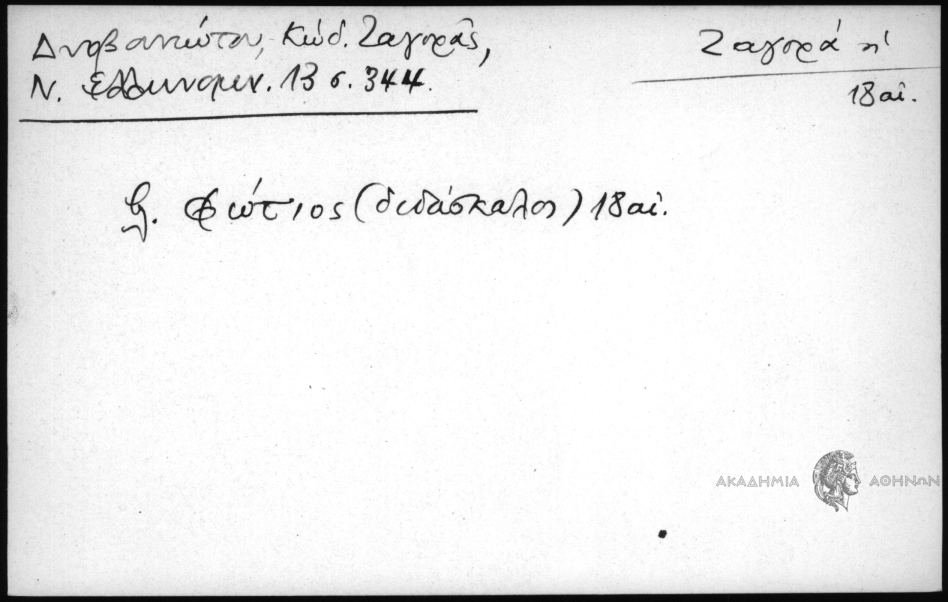 Δυοβουνιώτου, Κώδ. Ζαγορᾶς,
Ν. Ἑλληνομν. 13 σ. 344.
Ζαγορά ἡ
18 αἰ.
Φώτιος (διδάσκαλος) 18 αἰ.
ΑΚΑΔΗΜΙΑ ΑΘΗΝΩΝ